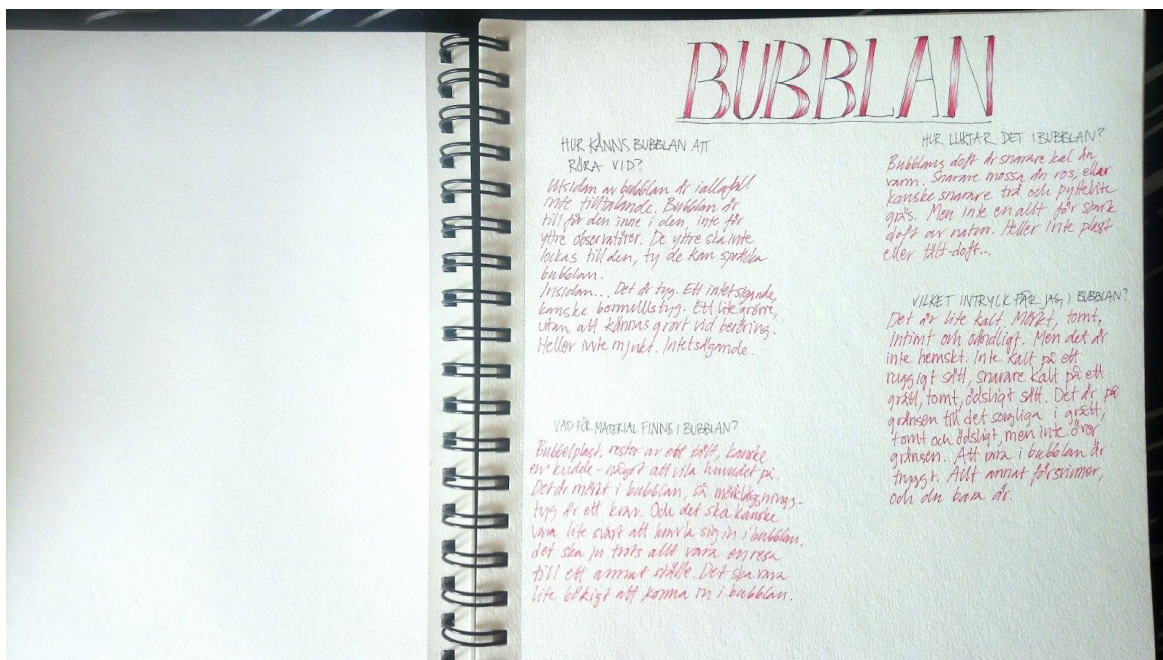 BUBBLAN
HUR KÄNNS BUBBLAN ATT
RÖRA VID?
Utsidan av bubblan är iallafall
inte tilltalande. Bubblan är
till för den inne i den, inte för
yttre observatörer. De yttre ska inte
lockas till den, ty de kan spräcka
bubblan.
Insidan... Det är tyg. Ett intetsägande,
kanske bomullstyg. Ett lite grövre,
utan att kännas grovt vid beröring.
Heller inte mjukt. Intetsägande.
VAD FÖR MATERIAL FINNS I BUBBLAN?
Bubbelplast, rester av ett tält, kanske
en kudde - något att vila huvudet på.
Det är mörkt i bubblan, så mörkläggnings-
tyg är ett krav. Och det ska kanske
vara lite svårt att krångla sig in i bubblan,
det ska ju trots allt vara en resa
till ett annat ställe. Det ska vara
lite bökigt att komma in i bubblan.
HUR LUKTAR DET I BUBBLAN?
Bubblans doft är snarare kal än
varm. Snarare mossa än ros, eller
kanske snarare trä och pyttelite
gräs. Men inte en allt för stark
doft av natur. Heller inte plast
eller tält-doft...
VILKET INTRYCK FÅR JAG I BUBBLAN?
Det är lite kallt. Mörkt, tomt,
intimt och oändligt. Men det är
inte hemskt. Inte kallt på ett
ruggigt sätt, snarare kalt på ett
grått, tomt, ödsligt sätt. Det är på
gränsen till det sorgliga i grått,
tomt och ödsligt, men inte över
gränsen. Att vara i bubblan är
tryggt. Allt annat försvinner,
och du bara är.